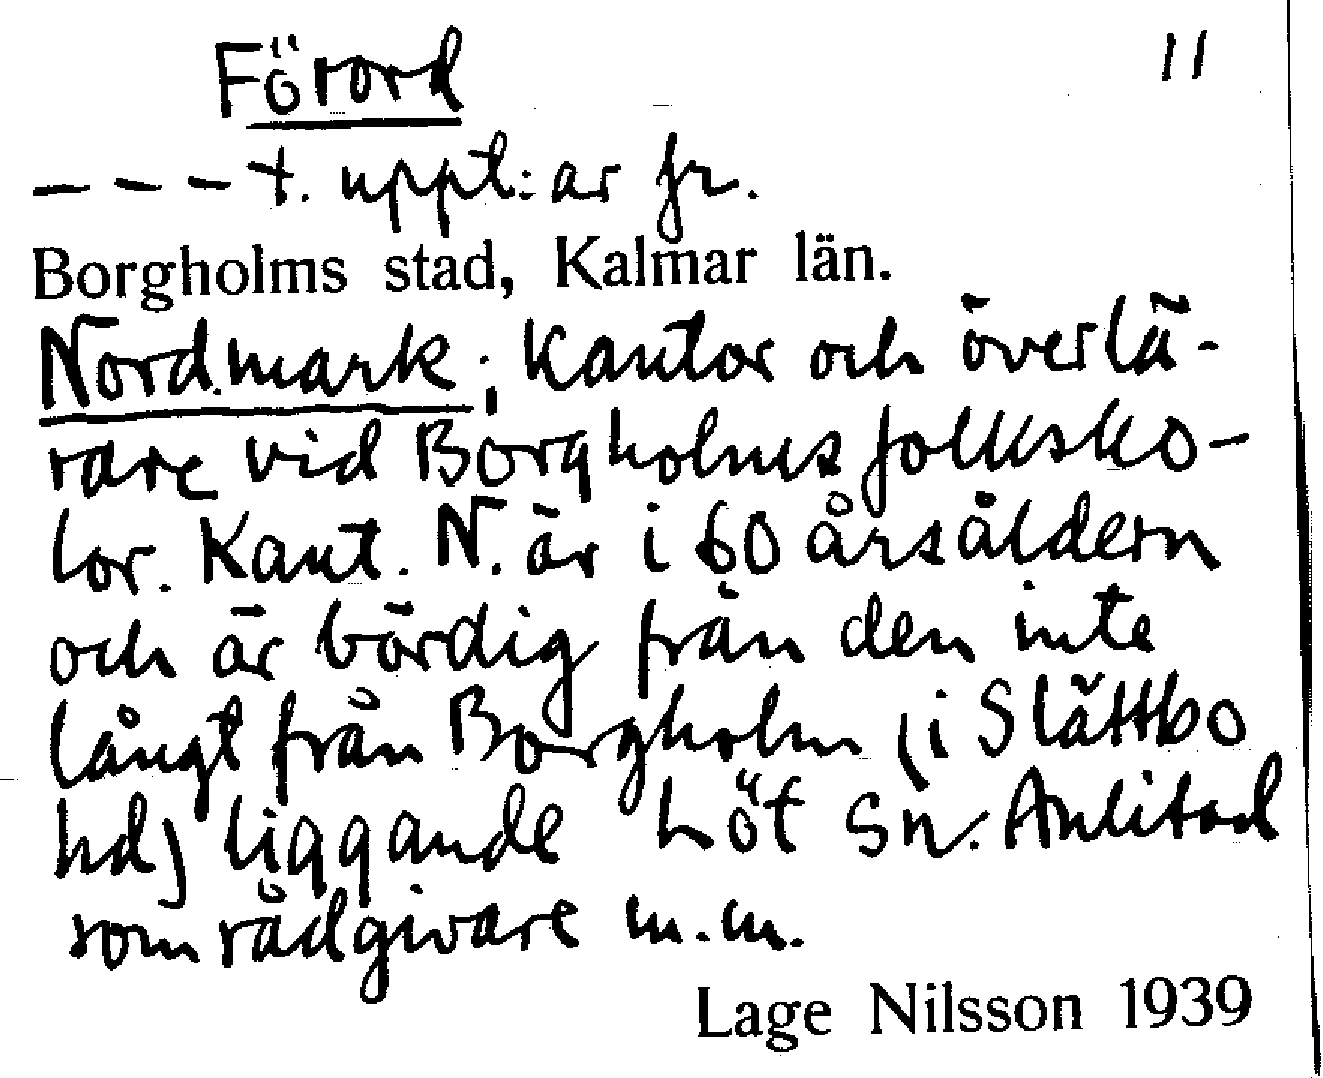 Förord 11
- - - t. uppt:ar fr.
Borgholms stad, Kalmar län.
Nordmark; Kantor och överlä-
rare vid Borgholms folksko-
lor. Kant. N. är i 60 årsåldern
och är bördig från den inte
långt från Borgholm (i Slättbo
hd) liggande Löt sn. Anlitad
som rådgivare m.m.
Lage Nilsson 1939